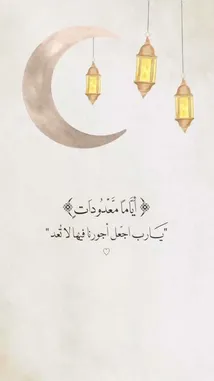 ﴿ أَيَّامًا مَّعْدُودَاتٍ ﴾
"يَارب اجعل أجورنا فيها لا تُعد"